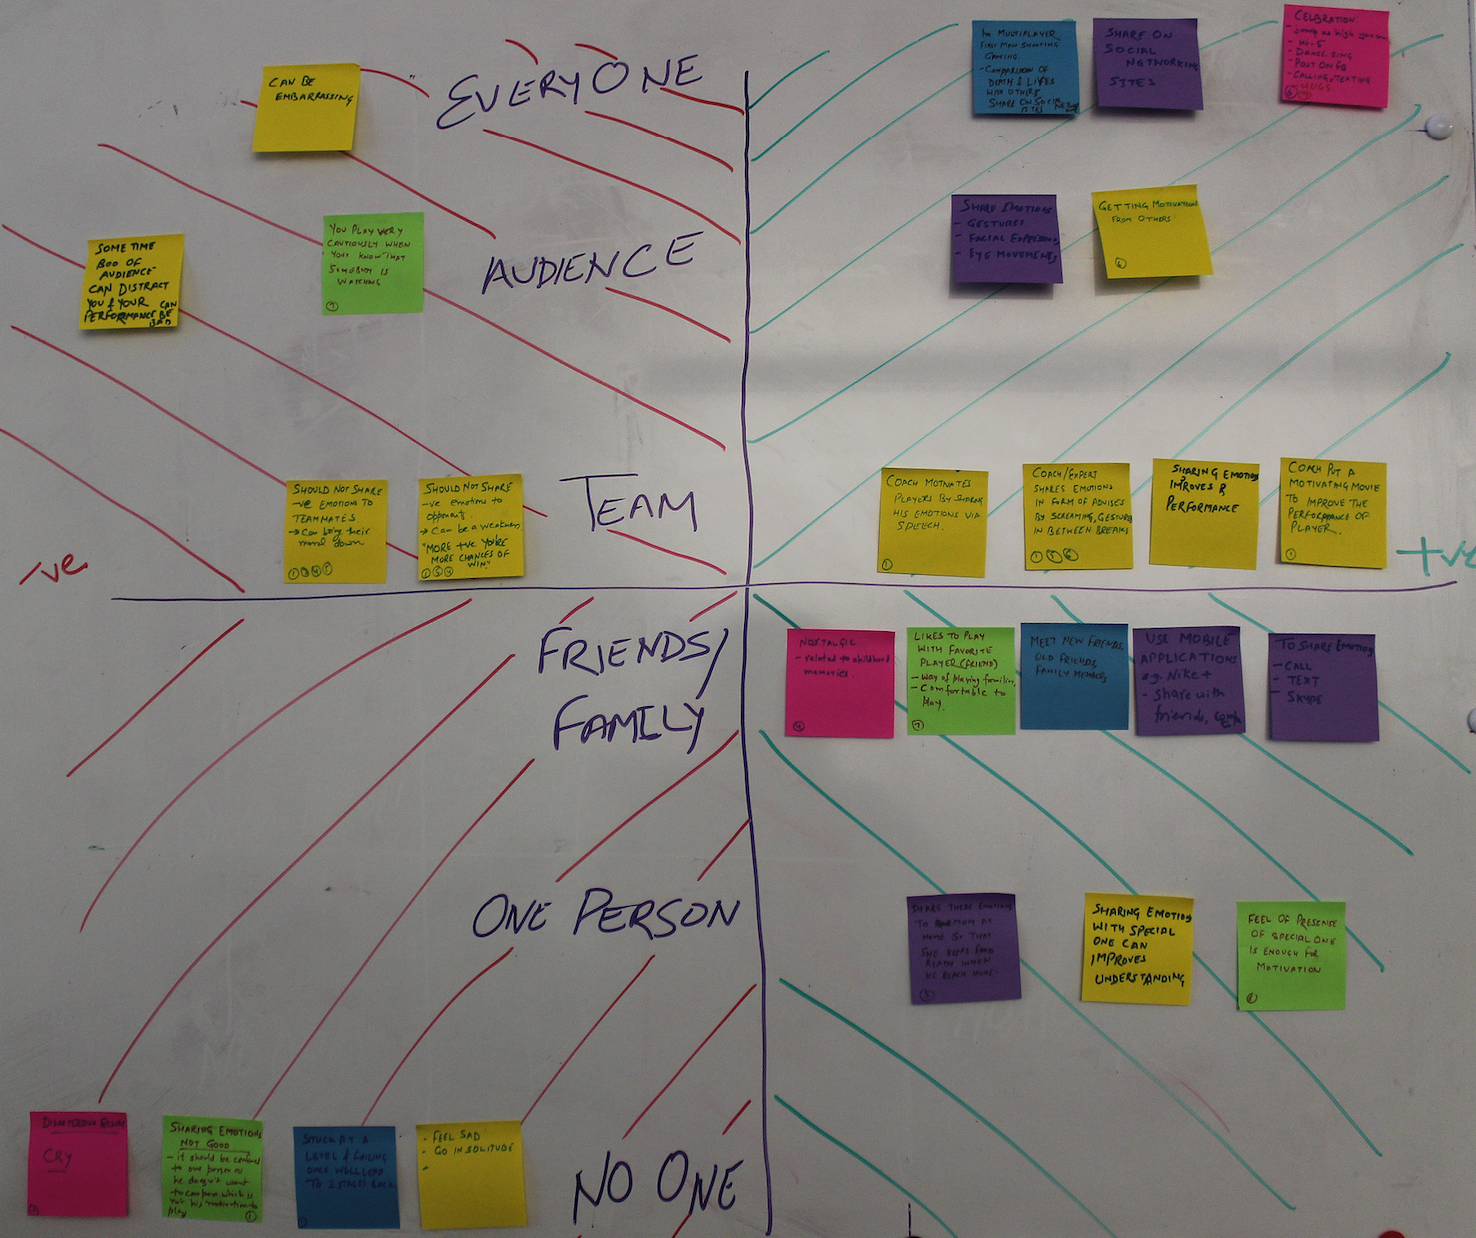 EVERYONE
CAN BE
EMBARRASSING
IN MULTIPLAYER
FIRST MAN SHOOTING
GAMING.
- COMPARISON OF
DEATH & LIFES
WITH OTHERS
SHARE ON SOCIAL
SITES
SHARE ON
SOCIAL
NETWORKING
SITES
CELBRATION:
- JUMP AS HIGH YOU CAN
- HI-5
- DANCE, SING
- POUT ON FB
- CALLING, TEXTING
HUGS.
AUDIENCE
SOME TIME
BOO OF
AUDIENCE
CAN DISTRACT
YOU & YOUR CAN
PERFORMANCE BE
BAD
YOU PLAY VERY
CAUTIOUSLY WHEN
YOU KNOW THAT
SOMEBODY IS
WATCHING
7
SHARE EMOTIONS
- GESTURES
- FACIAL EXPRESSIONS
- EYE MOVEMENTS
GETTING MOTIVATION
FROM OTHERS
6
TEAM
SHOULD NOT SHARE
-ve EMOTIONS TO
TEAMMATES
→ Can bring their
moral down
1 3 4 5
SHOULD NOT SHARE
-ve emotions to
opponents.
→ Can be a weakness
"MORE +ve YOU'RE
MORE CHANCES OF
WIN"
COACH MOTIVATES
PLAYERS BY SHARING
HIS EMOTIONS VIA
SPEECH.
1
COACH/EXPERT
SHARES EMOTIONS
IN FORM OF ADVISES
BY SCREAMING, GESTURES
IN BETWEEN BREAKS
1 5 6
SHARING EMOTIONS
IMPROVES
PERFORMANCE
COACH PUT A
MOTIVATING MOVIE
TO IMPROVE THE
PERFORMANCE OF
PLAYER.
1
-ve
+ve
FRIENDS/
FAMILY
NOSTALGIC
- related to childhood
memories.
4
LIKES TO PLAY
WITH FAVORITE
PLAYER (FRIEND)
- Way of playing familiar,
- Comfortable to
play.
7
MEET NEW FRIENDS,
OLD FRIENDS,
FAMILY MEMBERS
USE MOBILE
APPLICATIONS
e.g. Nike +
- Share with
friends,
TO SHARE EMOTION
- CALL
- TEXT
- SKYPE
ONE PERSON
SHARE THERE EMOTIONS
TO MOM AT
HOME SO THAT
SHE KEEPS FOOD
READY WHEN
HE REACH HOME.
SHARING EMOTIONS
WITH SPECIAL
ONE CAN
IMPROVES
UNDERSTANDING
FEEL OF PRESENSE
OF SPECIAL ONE
IS ENOUGH FOR
MOTIVATION
6
NO ONE
CRY
SHARING EMOTIONS
NOT GOOD
- it should be
to one person as
he doesn't want
to compare which is
not his motivation to
play
STUCK AT A
LEVEL & FAILING
ONCE WILL LEAD
TO 2 STAGES BACK
- FEEL SAD
- GO IN SOLITUDE
-